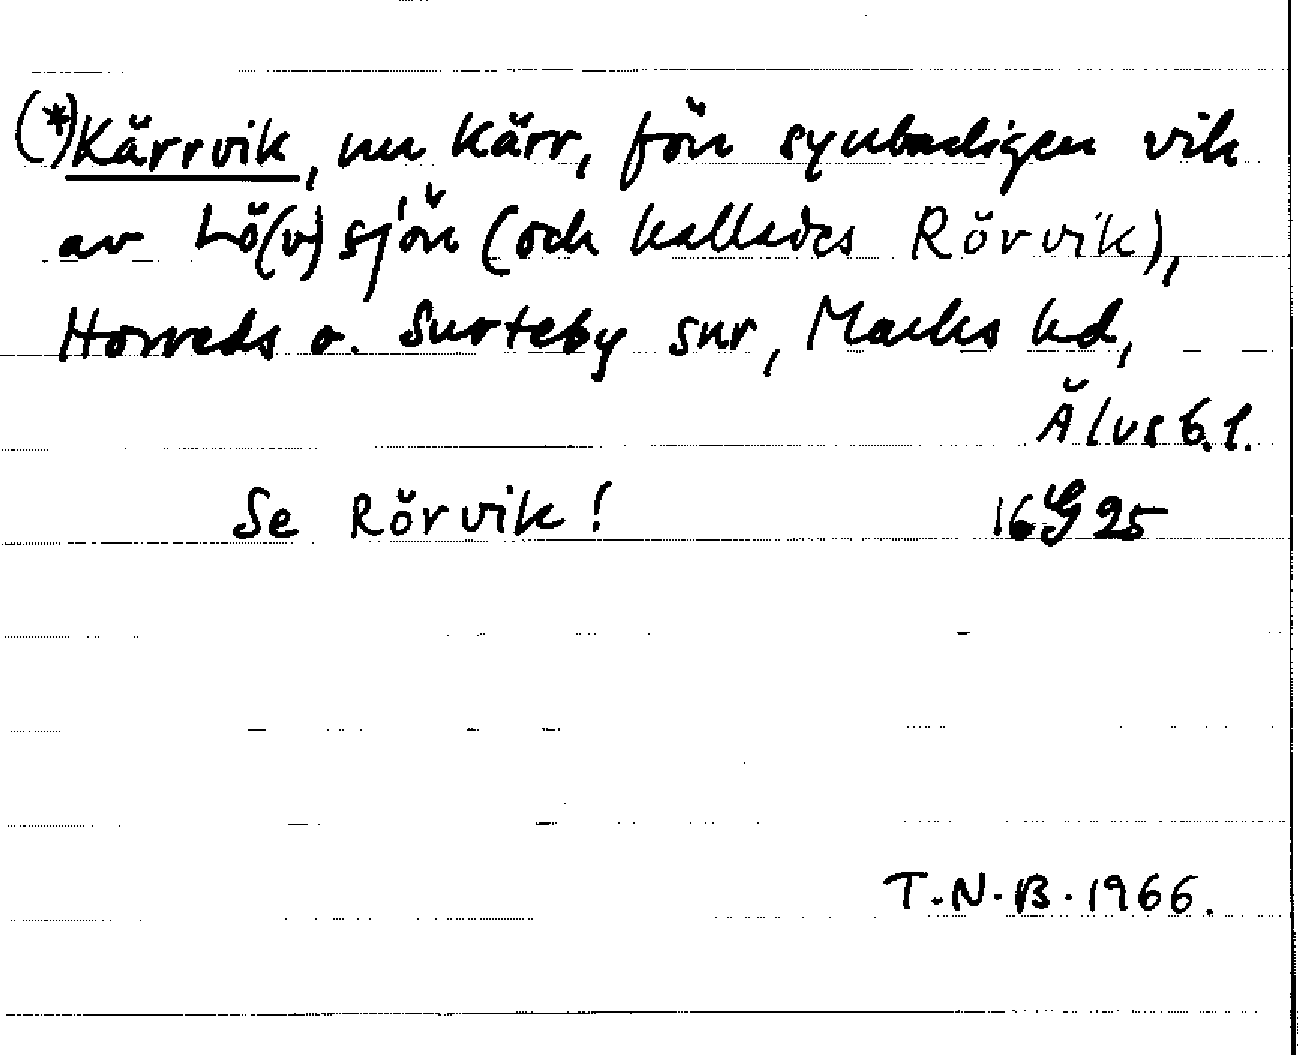 (*)Kärrvik, nu Kärr, förr synbarligen vik
av Lö(v)sjön (och kallades Rörvik),
Horreds o. Surteby snr, Marks hd,
Älvsb. l.
Se Rörvik! 16 G 25
T.N.B. 1966.